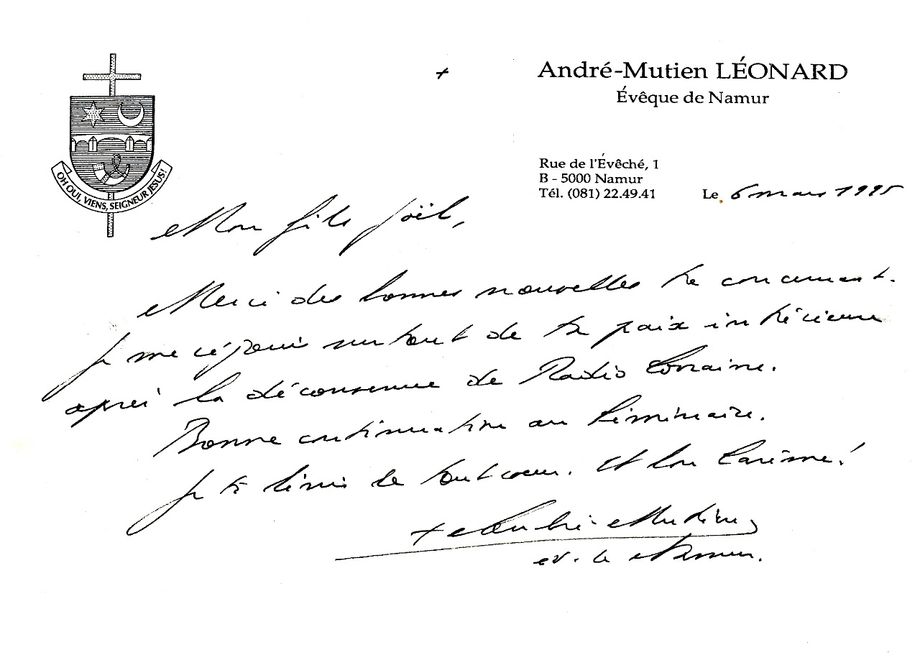 +
André-Mutien LÉONARD
Évêque de Namur
Rue de l'Évêché, 1
B - 5000 Namur
Tél. (081) 22.49.41
Le 6 mars 1995
OH OUI, VIENS, SEIGNEUR JÉSUS!
Mon fils Joël,
Merci des bonnes nouvelles te concernant.
Je me réjouis surtout de ta paix intérieure
après la déconvenue de Radio Lorraine.
Bonne continuation au Séminaire.
Je te bénis de tout coeur. Et bon Carême!
+ André-Mutien
év. de Namur.